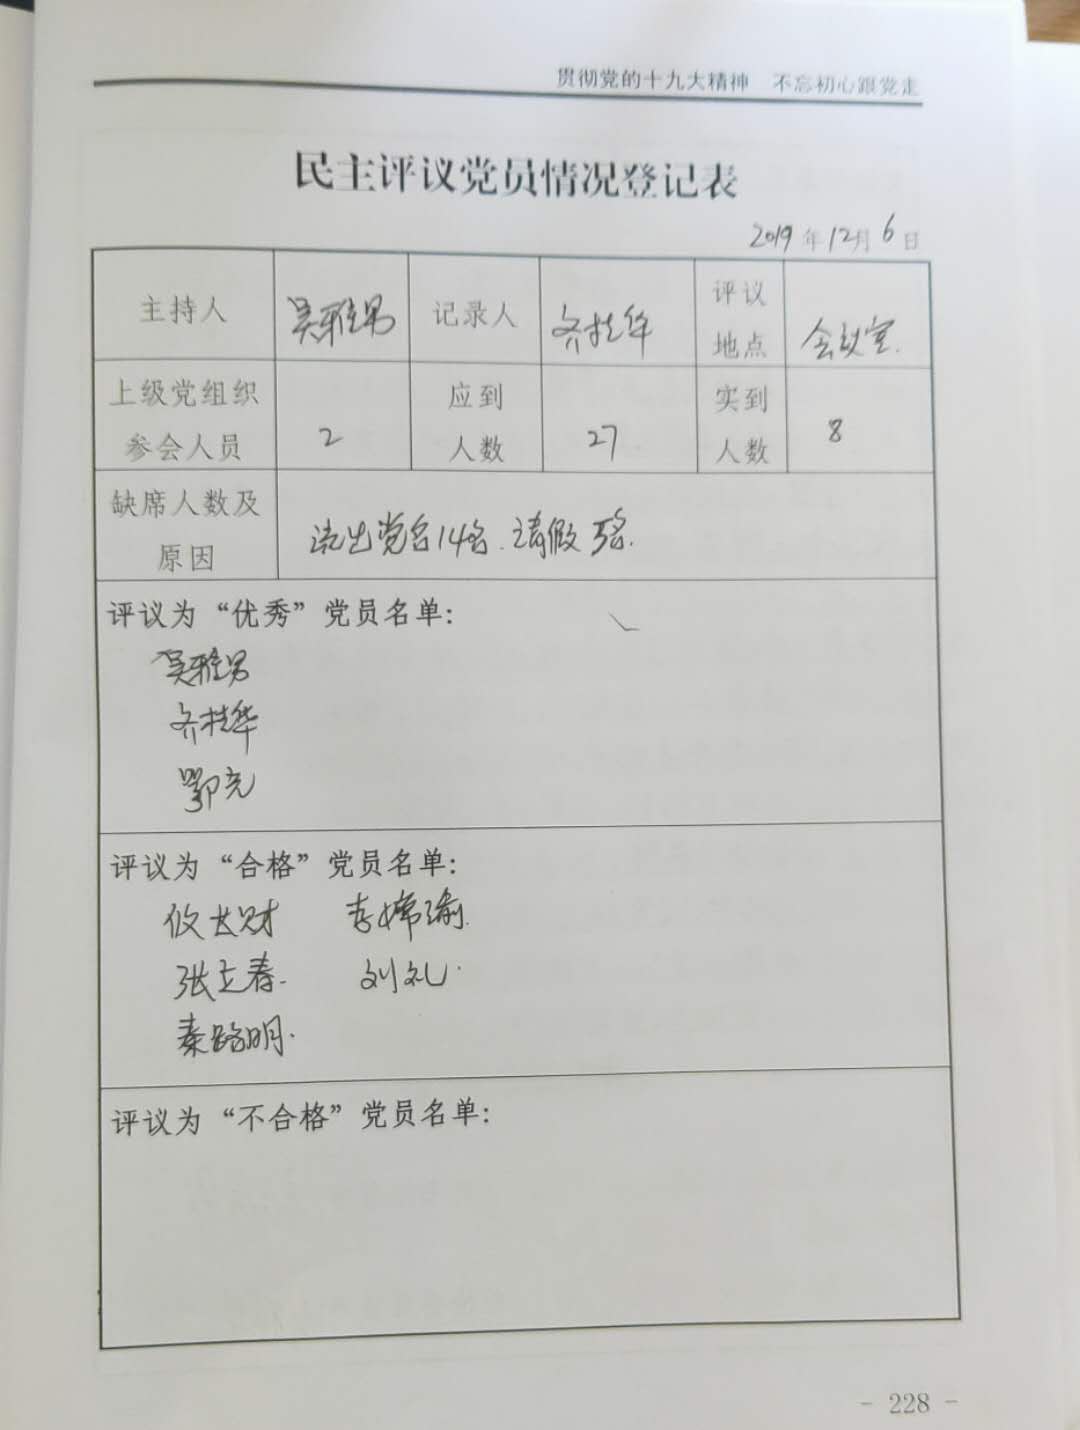 贯彻党的十九大精神 不忘初心跟党走
民主评议党员情况登记表
2019年12月6日
主持人 吴雅男 记录人 齐桂华 评议地点 会议室.
上级党组织参会人员 2 应到人数 27 实到人数 8
缺席人数及原因 流出党员14名.请假5名.
评议为“优秀”党员名单:
吴雅男
齐桂华
鄂亮
评议为“合格”党员名单:
张立春. 刘礼.
秦路明.
评议为“不合格”党员名单:
- 228 -